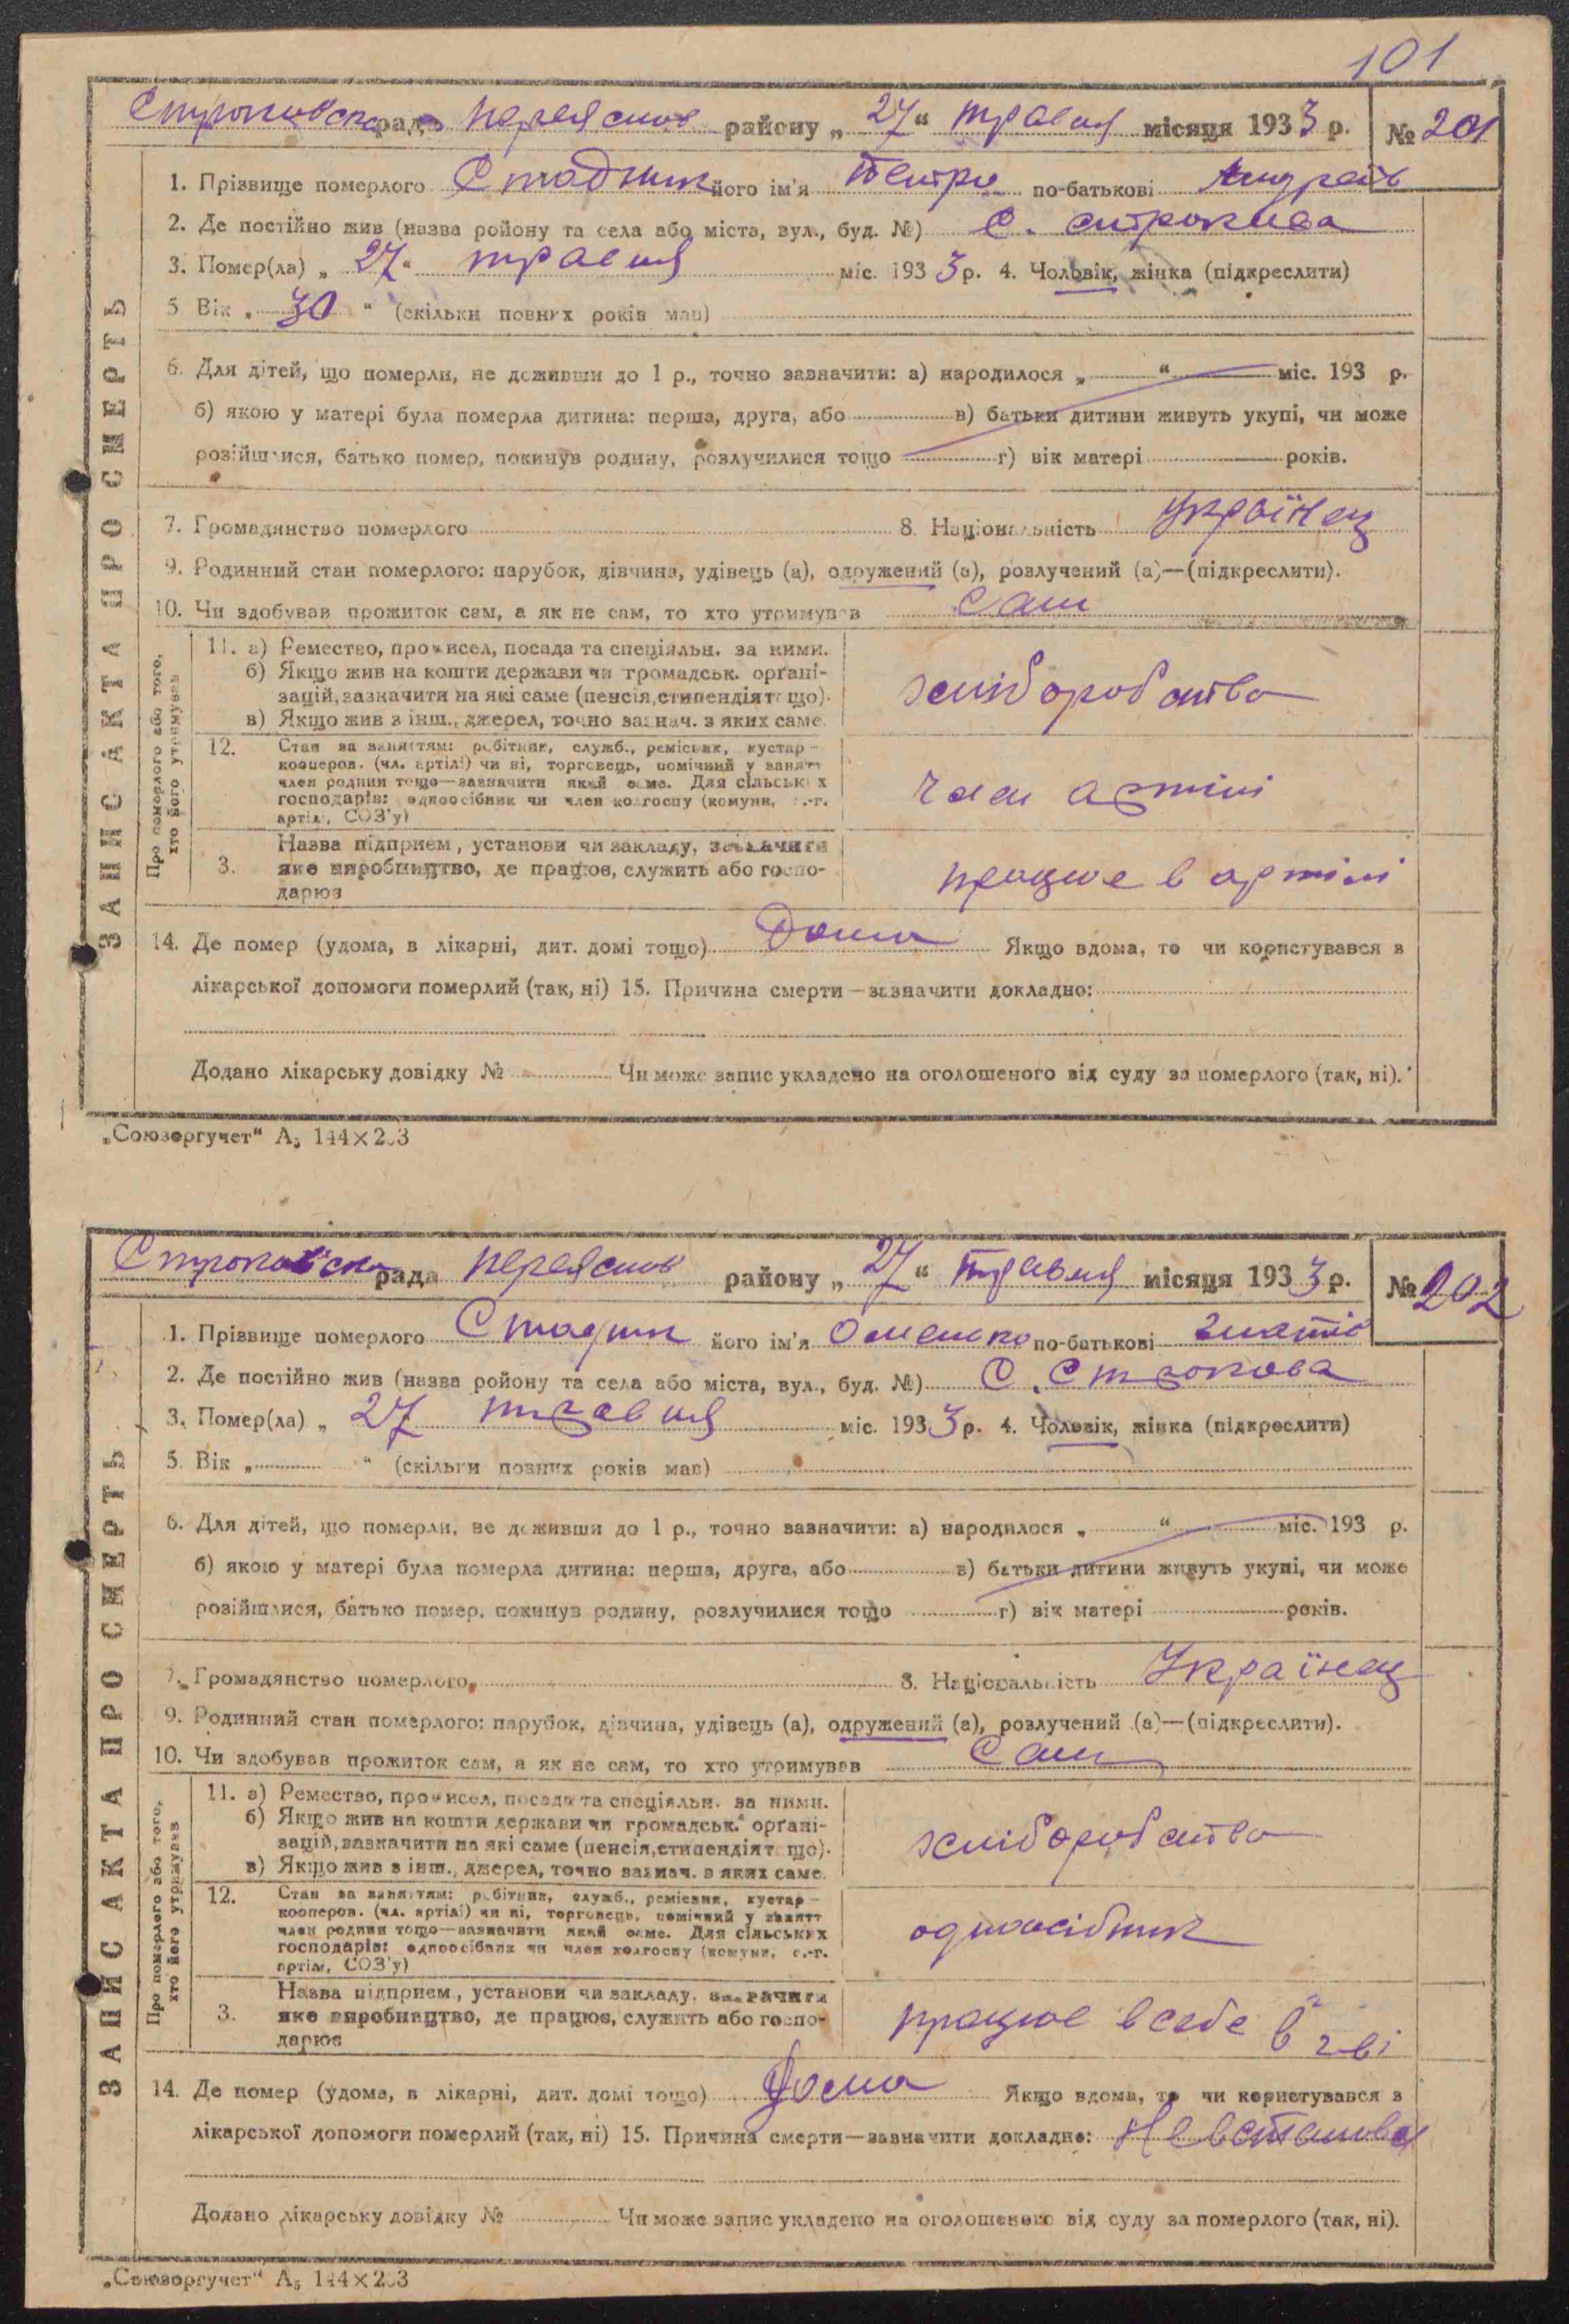 101
Строковська рада Переяслов району „ 27 “ травня місяця 1933 р. № 201
ЗАПИС АКТА ПРО СМЕРТЬ
1. Прізвище померлого Стадник його ім'я Петро по-батькові Андреїв
2. Де постійно жив (назва ройону та села або міста, вул., буд. №) С. Строкова
3. Помер(ла) „ 27 “ травня міс. 1933 р. 4. Чоловік, жінка (підкреслити)
5 Вік „ 30 “ (скільки повних років мав)
6. Для дітей, що померли, не доживши до 1 р., точно зазначити: а) народилося „ “ міс. 193 р.
б) якою у матері була померла дитина: перша, друга, або в) батьки дитини живуть укупі, чи може
розійшлися, батько помер, покинув родину, розлучилися тощо г) вік матері років.
7. Громадянство померлого 8. Національність Українец
9. Родинний стан померлого: парубок, дівчина, удівець (а), одружений (а), розлучений (а)—(підкреслити).
10. Чи здобував прожиток сам, а як не сам, то хто утримував сам
Про померлого або того, хто його утримував
11. а) Ремество, промисел, посада та спеціяльн. за ними.
б) Якщо жив на кошти держави чи громадськ. орґані-
зацій, зазначити на які саме (пенсія, стипендія тощо).
в) Якщо жив з інш., джерел, точно зазнач. з яких саме.
хліборобство
12. Стан за заняттям: робітник, служб., ремісник, кустар –
кооперов. (чл. артілі) чи ні, торговець, помічний у занятт
член родини тощо—зазначити який саме. Для сільських
господарів: одноосібник чи член колгоспу (комуни, с.-г.
артіли, СОЗ'у)
член артілі
3. Назва підприєм., установи чи закладу, зазначити
яке виробництво, де працює, служить або госпо-
дарює
працює в артілі
14. Де помер (удома, в лікарні, дит. домі тощо) Дома Якщо вдома, то чи користувався з
лікарської допомоги померлий (так, ні) 15. Причина смерти—зазначити докладно:
Додано лікарську довідку № Чи може запис укладено на оголошеного від суду за померлого (так, ні).
„Союзоргучет“ А5 144×203
Строковська рада Переяслов району „ 27 “ травня місяця 1933 р. № 202
ЗАПИС АКТА ПРО СМЕРТЬ
1. Прізвище померлого Стадник його ім'я Омелько по-батькові
2. Де постійно жив (назва ройону та села або міста, вул., буд. №) С. Строкова
3. Помер(ла) „ 27 травня міс. 1933 р. 4. Чоловік, жінка (підкреслити)
5. Вік „ “ (скільки повних років мав)
6. Для дітей, що померли, не доживши до 1 р., точно зазначити: а) народилося „ “ міс. 193 р.
б) якою у матері була померла дитина: перша, друга, або в) батьки дитини живуть укупі, чи може
розійшлися, батько помер, покинув родину, розлучилися тощо г) вік матері років.
7. Громадянство померлого 8. Національність Українец
9. Родинний стан померлого: парубок, дівчина, удівець (а), одружений (а), розлучений (а)—(підкреслити).
10. Чи здобував прожиток сам, а як не сам, то хто утримував сам
Про померлого або того, хто його утримував
11. а) Ремество, промисел, посада та спеціяльн. за ними.
б) Якщо жив на кошти держави чи громадськ. орґані-
зацій, зазначити на які саме (пенсія, стипендія тощо).
в) Якщо жив з інш., джерел, точно зазнач. з яких саме.
хліборобство
12. Стан за заняттям: робітник, служб., ремісник, кустар –
кооперов. (чл. артілі) чи ні, торговець, помічний у занятт
член родини тощо—зазначити який саме. Для сільських
господарів: одноосібник чи член колгоспу (комуни, с.-г.
артіли, СОЗ'у)
одноосібник
3. Назва підприєм., установи чи закладу, зазначити
яке виробництво, де працює, служить або госпо-
дарює
працює в себе в г-ві
14. Де помер (удома, в лікарні, дит. домі тощо) Дома Якщо вдома, то чи користувався з
лікарської допомоги померлий (так, ні) 15. Причина смерти—зазначити докладно:
Додано лікарську довідку № Чи може запис укладено на оголошеного від суду за померлого (так, ні).
„Союзоргучет“ А5 144×203